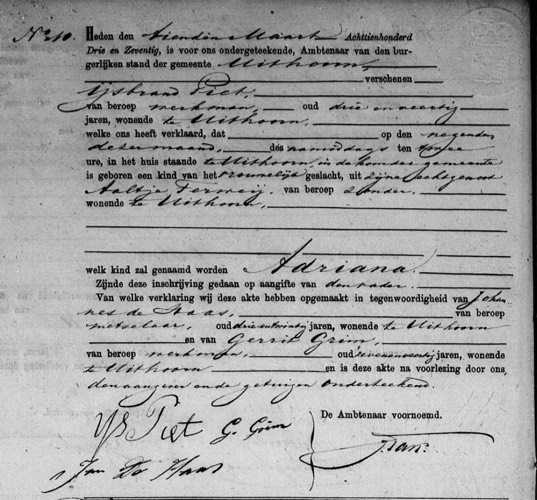 No. 10. Heden den tienden Maart Achttienhonderd
Drie en Zeventig, is voor ons ondergeteekende, Ambtenaar van den bur-
gerlijken stand der gemeente Uithoorn,
verschenen
IJsbrand Piet,
van beroep werkman, oud drie en veertig
jaren, wonende te Uithoorn,
welke ons heeft verklaard, dat op den negenden
dezer maand, des namiddags ten
ure, in het huis staande te Uithoorn, in de gemeente
is geboren een kind van het vrouwelijk geslacht, uit zijne echtgenoot
Aaltje Terweij, van beroep zonder,
wonende te Uithoorn,
welk kind zal genaamd worden Adriana.
Zijnde deze inschrijving gedaan op aangifte van den vader.
Van welke verklaring wij deze akte hebben opgemaakt in tegenwoordigheid van Johan-
nes de Haas, van beroep
metselaar, oud drie en twintig jaren, wonende te Uithoorn
en van Gerrit Grim,
van beroep werkman, oud zeven en veertig jaren, wonende
te Uithoorn en is deze akte na voorlezing door ons,
den aangever en de getuigen onderteekend.
De Ambtenaar voornoemd.
IJs Piet G. Grim
Jan De Haas